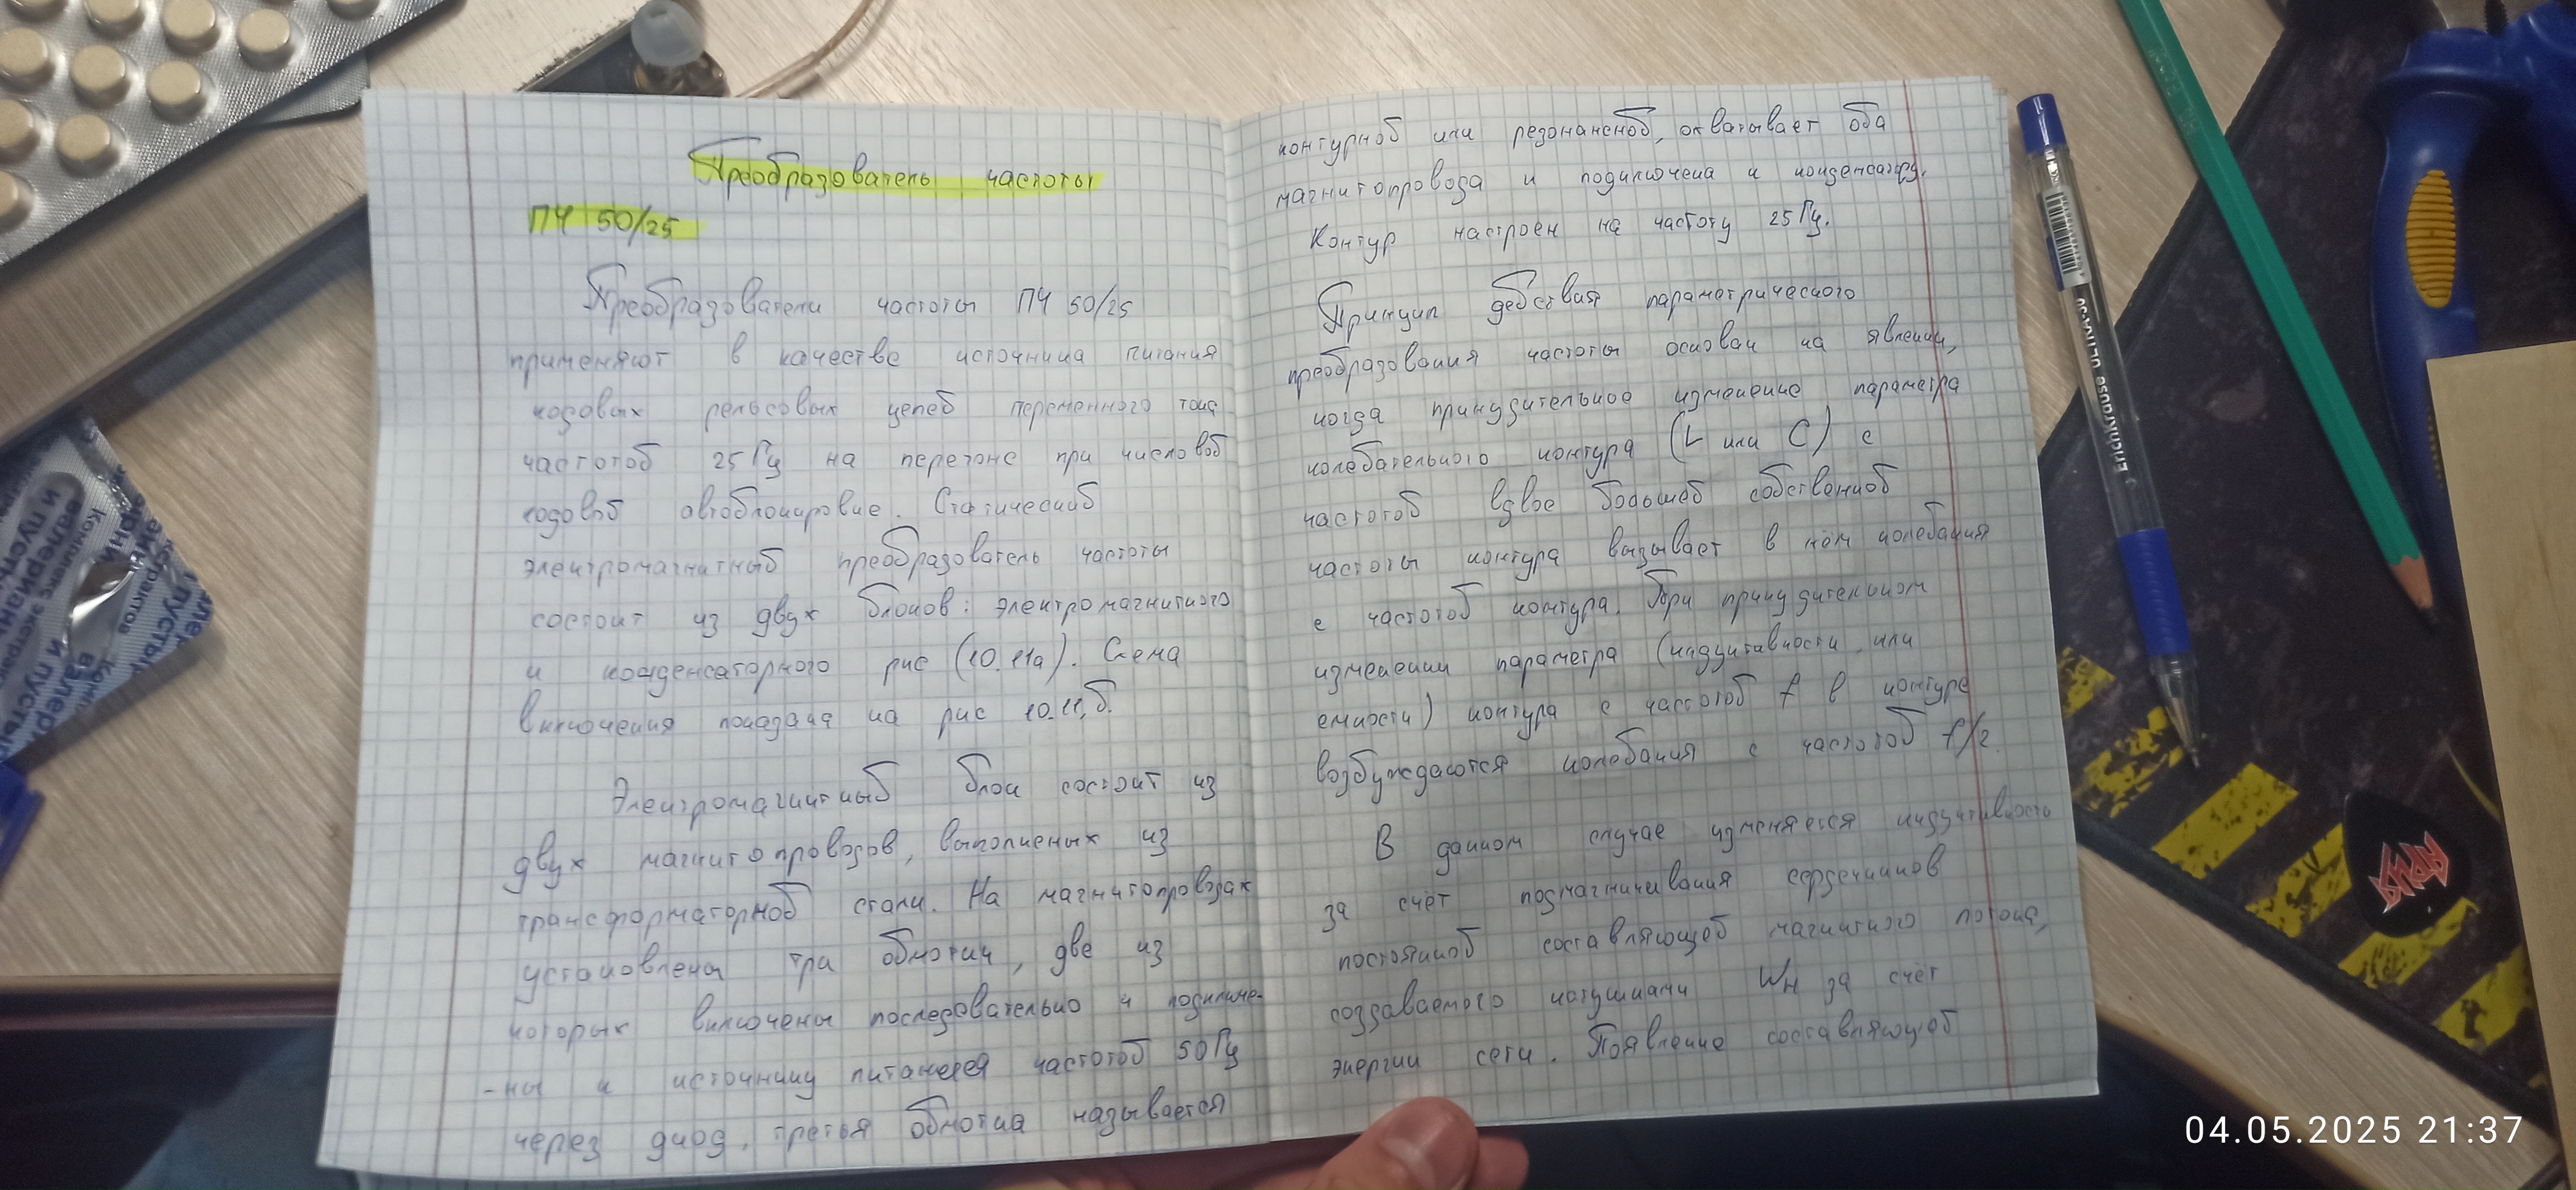 Преобразователь частоты
ПЧ 50/25
Преобразователи частоты ПЧ 50/25
применяют в качестве источника питания
кодовых рельсовых цепей переменного тока
частотой 25 Гц на перегоне при числовой
кодовой автоблокировке. Статический
электромагнитный преобразователь частоты
состоит из двух блоков: электромагнитного
и конденсаторного рис (10.11а). Схема
включения показана на рис 10.11,б.
Электромагнитный блок состоит из
двух магнитопроводов, выполненых из
трансформаторной стали. На магнитопроводах
установлены три обмотки, две из
которых включены последовательно и подключе-
-ны к источнику питания частотой 50 Гц
через диод, третья обмотка называется
контурной или резонансной, охватывает оба
магнитопровода и подключена к конденсатору.
Контур настроен на частоту 25 Гц.
Принцип действия параметрического
преобразования частоты основан на явлении,
когда принудительное изменение параметра
колебательного контура (L или C) с
частотой вдвое большей собственной
частоты контура вызывает в нём колебания
с частотой контура. При принудительном
изменении параметра (индуктивности или
емкости) контура с частотой f в контуре
возбуждаются колебания с частотой f/2.
В данном случае изменяется индуктивность
за счёт подмагничивания сердечников
постоянной составляющей магнитного потока,
создаваемого катушками Wн за счёт
энергии сети. Появление составляющей
ErichKrause ULTRA-30
АРИЯ
04.05.2025 21:37